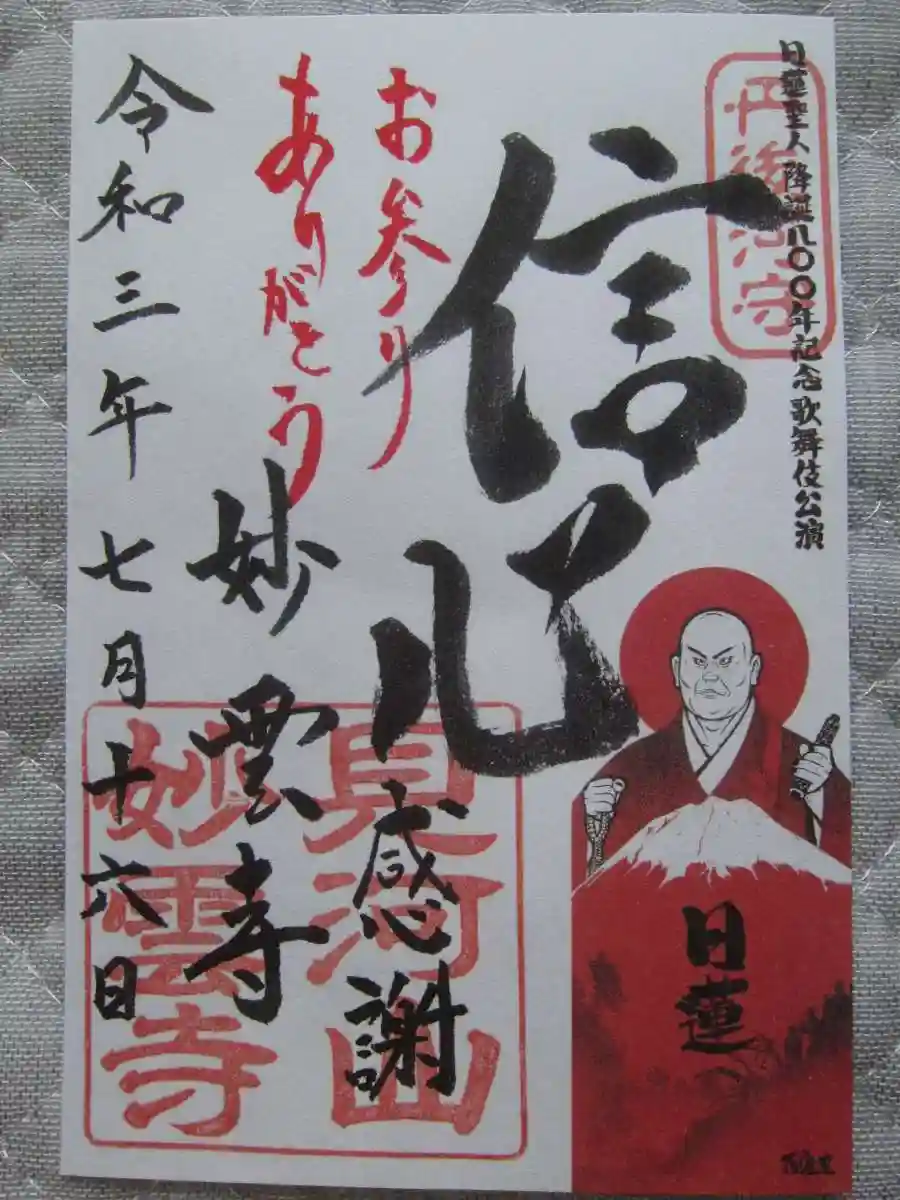 日蓮聖人降誕八〇〇年記念歌舞伎公演
信心
お参り
ありがとう
感謝
妙雲寺
令和三年七月十六日
妙雲寺
日蓮